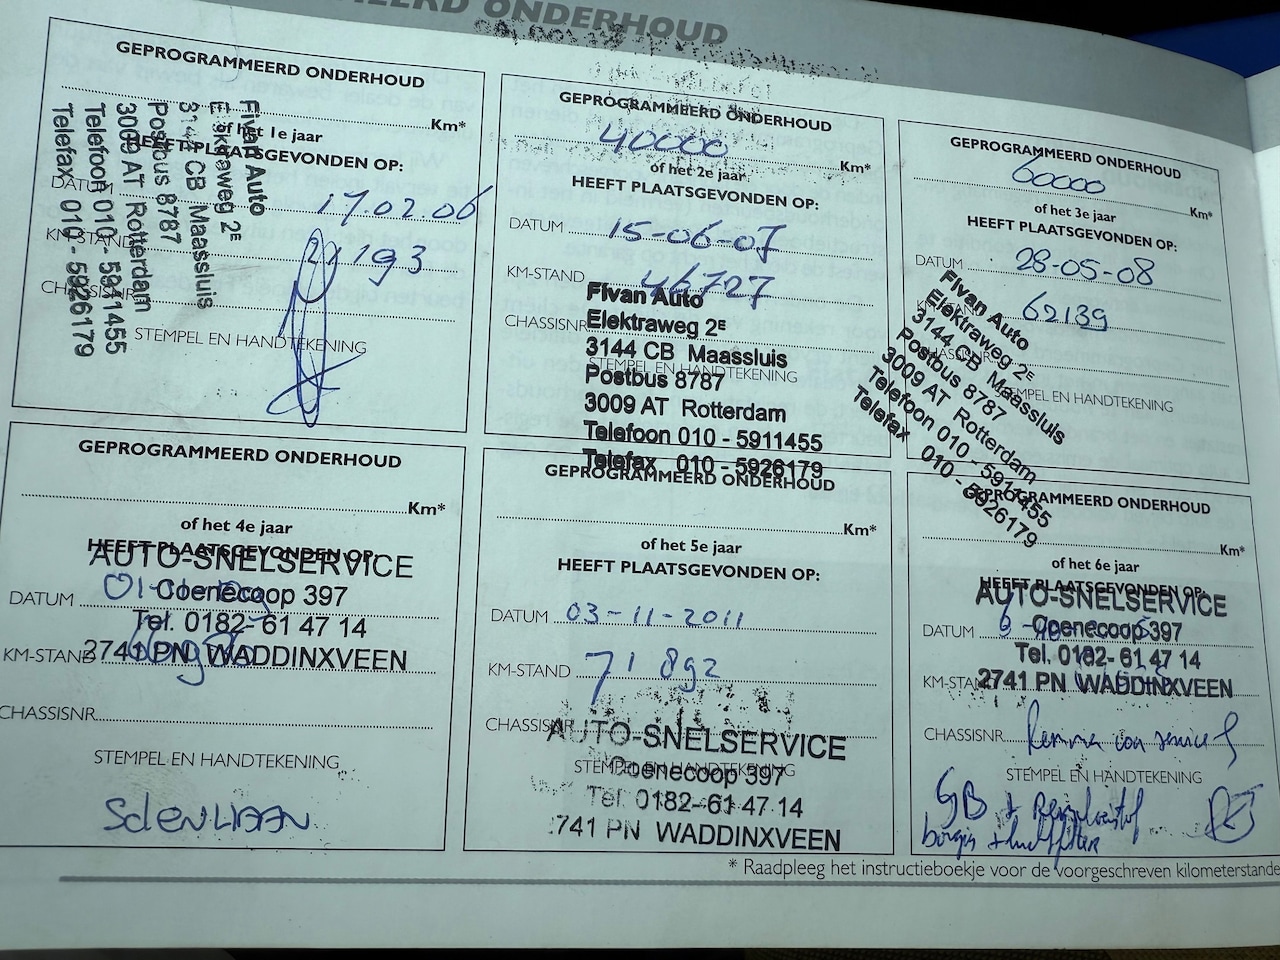 ONDERHOUD
GEPROGRAMMEERD ONDERHOUD
Km*
of het 1e jaar
HEEFT PLAATSGEVONDEN OP:
DATUM 17.02.06
KM-STAND 21193
CHASSISNR
STEMPEL EN HANDTEKENING
Fivan Auto
Elektraweg 2E
3144 CB Maassluis
Postbus 8787
3009 AT Rotterdam
Telefoon 010 - 5911455
Telefax 010 - 5926179
GEPROGRAMMEERD ONDERHOUD
40000 Km*
of het 2e jaar
HEEFT PLAATSGEVONDEN OP:
DATUM 15-06-07
KM-STAND 46727
CHASSISNR
STEMPEL EN HANDTEKENING
Fivan Auto
Elektraweg 2E
3144 CB Maassluis
Postbus 8787
3009 AT Rotterdam
Telefoon 010 - 5911455
Telefax 010 - 5926179
GEPROGRAMMEERD ONDERHOUD
60000 Km*
of het 3e jaar
HEEFT PLAATSGEVONDEN OP:
DATUM 28-05-08
62139
CHASSISNR
STEMPEL EN HANDTEKENING
Fivan Auto
Elektraweg 2E
3144 CB Maassluis
Postbus 8787
3009 AT Rotterdam
Telefoon 010 - 5911455
Telefax 010 - 5926179
GEPROGRAMMEERD ONDERHOUD
Km*
of het 4e jaar
HEEFT PLAATSGEVONDEN OP:
DATUM
KM-STAND
CHASSISNR
STEMPEL EN HANDTEKENING
AUTO-SNELSERVICE
Coenecoop 397
Tel. 0182-61 47 14
2741 PN WADDINXVEEN
GEPROGRAMMEERD ONDERHOUD
Km*
of het 5e jaar
HEEFT PLAATSGEVONDEN OP:
DATUM 03-11-2011
KM-STAND 71892
CHASSISNR
STEMPEL EN HANDTEKENING
AUTO-SNELSERVICE
Coenecoop 397
Tel. 0182-61 47 14
2741 PN WADDINXVEEN
GEPROGRAMMEERD ONDERHOUD
Km*
of het 6e jaar
HEEFT PLAATSGEVONDEN OP:
DATUM
KM-STAND
CHASSISNR
STEMPEL EN HANDTEKENING
AUTO-SNELSERVICE
Coenecoop 397
Tel. 0182-61 47 14
2741 PN WADDINXVEEN
* Raadpleeg het instructieboekje voor de voorgeschreven kilometerstande